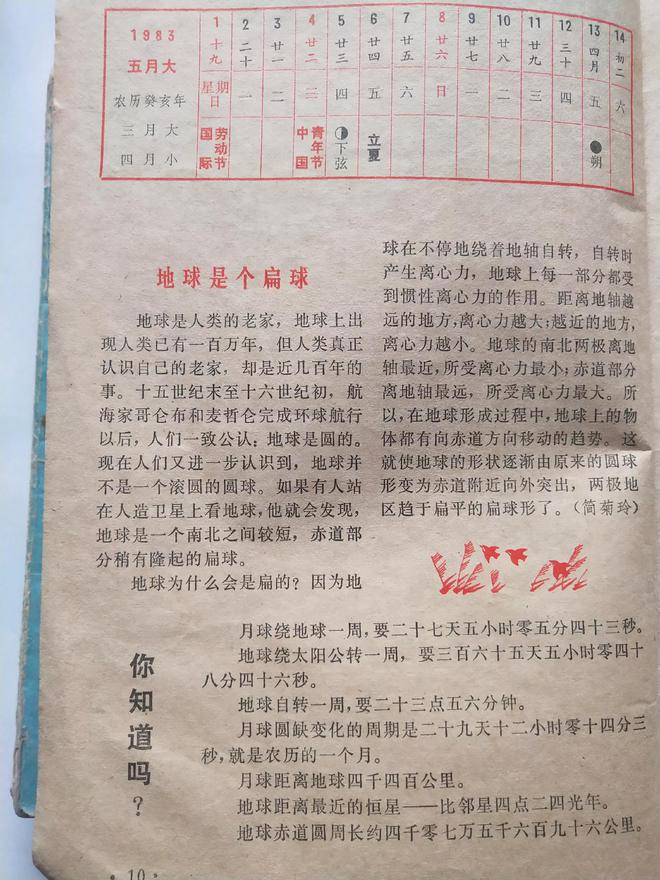 1983
五月大
农历癸亥年
三月大
四月小
1 2 3 4 5 6 7 8 9 10 11 12 13 14
十九 二十 廿一 廿二 廿三 廿四 廿五 廿六 廿七 廿八 廿九 三十 四月 初二
星期日 一 二 三 四 五 六 日 一 二 三 四 五 六
国际劳动节 中国青年节 下弦 立夏 朔
地球是个扁球
地球是人类的老家，地球上出
现人类已有一百万年，但人类真正
认识自己的老家，却是近几百年的
事。十五世纪末至十六世纪初，航
海家哥仑布和麦哲仑完成环球航行
以后，人们一致公认：地球是圆的。
现在人们又进一步认识到，地球并
不是一个滚圆的圆球。如果有人站
在人造卫星上看地球，他就会发现，
地球是一个南北之间较短，赤道部
分稍有隆起的扁球。
地球为什么会是扁的？因为地
球在不停地绕着地轴自转，自转时
产生离心力，地球上每一部分都受
到惯性离心力的作用。距离地轴越
远的地方，离心力越大；越近的地方，
离心力越小。地球的南北两极离地
轴最近，所受离心力最小；赤道部分
离地轴最远，所受离心力最大。所
以，在地球形成过程中，地球上的物
体都有向赤道方向移动的趋势。这
就使地球的形状逐渐由原来的圆球
形变为赤道附近向外突出，两极地
区趋于扁平的扁球形了。（简菊玲）
你知道吗？
月球绕地球一周，要二十七天五小时零五分四十三秒。
地球绕太阳公转一周，要三百六十五天五小时零四十
八分四十六秒。
地球自转一周，要二十三点五六分钟。
月球圆缺变化的周期是二十九天十二小时零十四分三
秒，就是农历的一个月。
月球距离地球四千四百公里。
地球距离最近的恒星——比邻星四点二四光年。
地球赤道圆周长约四千零七万五千六百九十六公里。
·10·